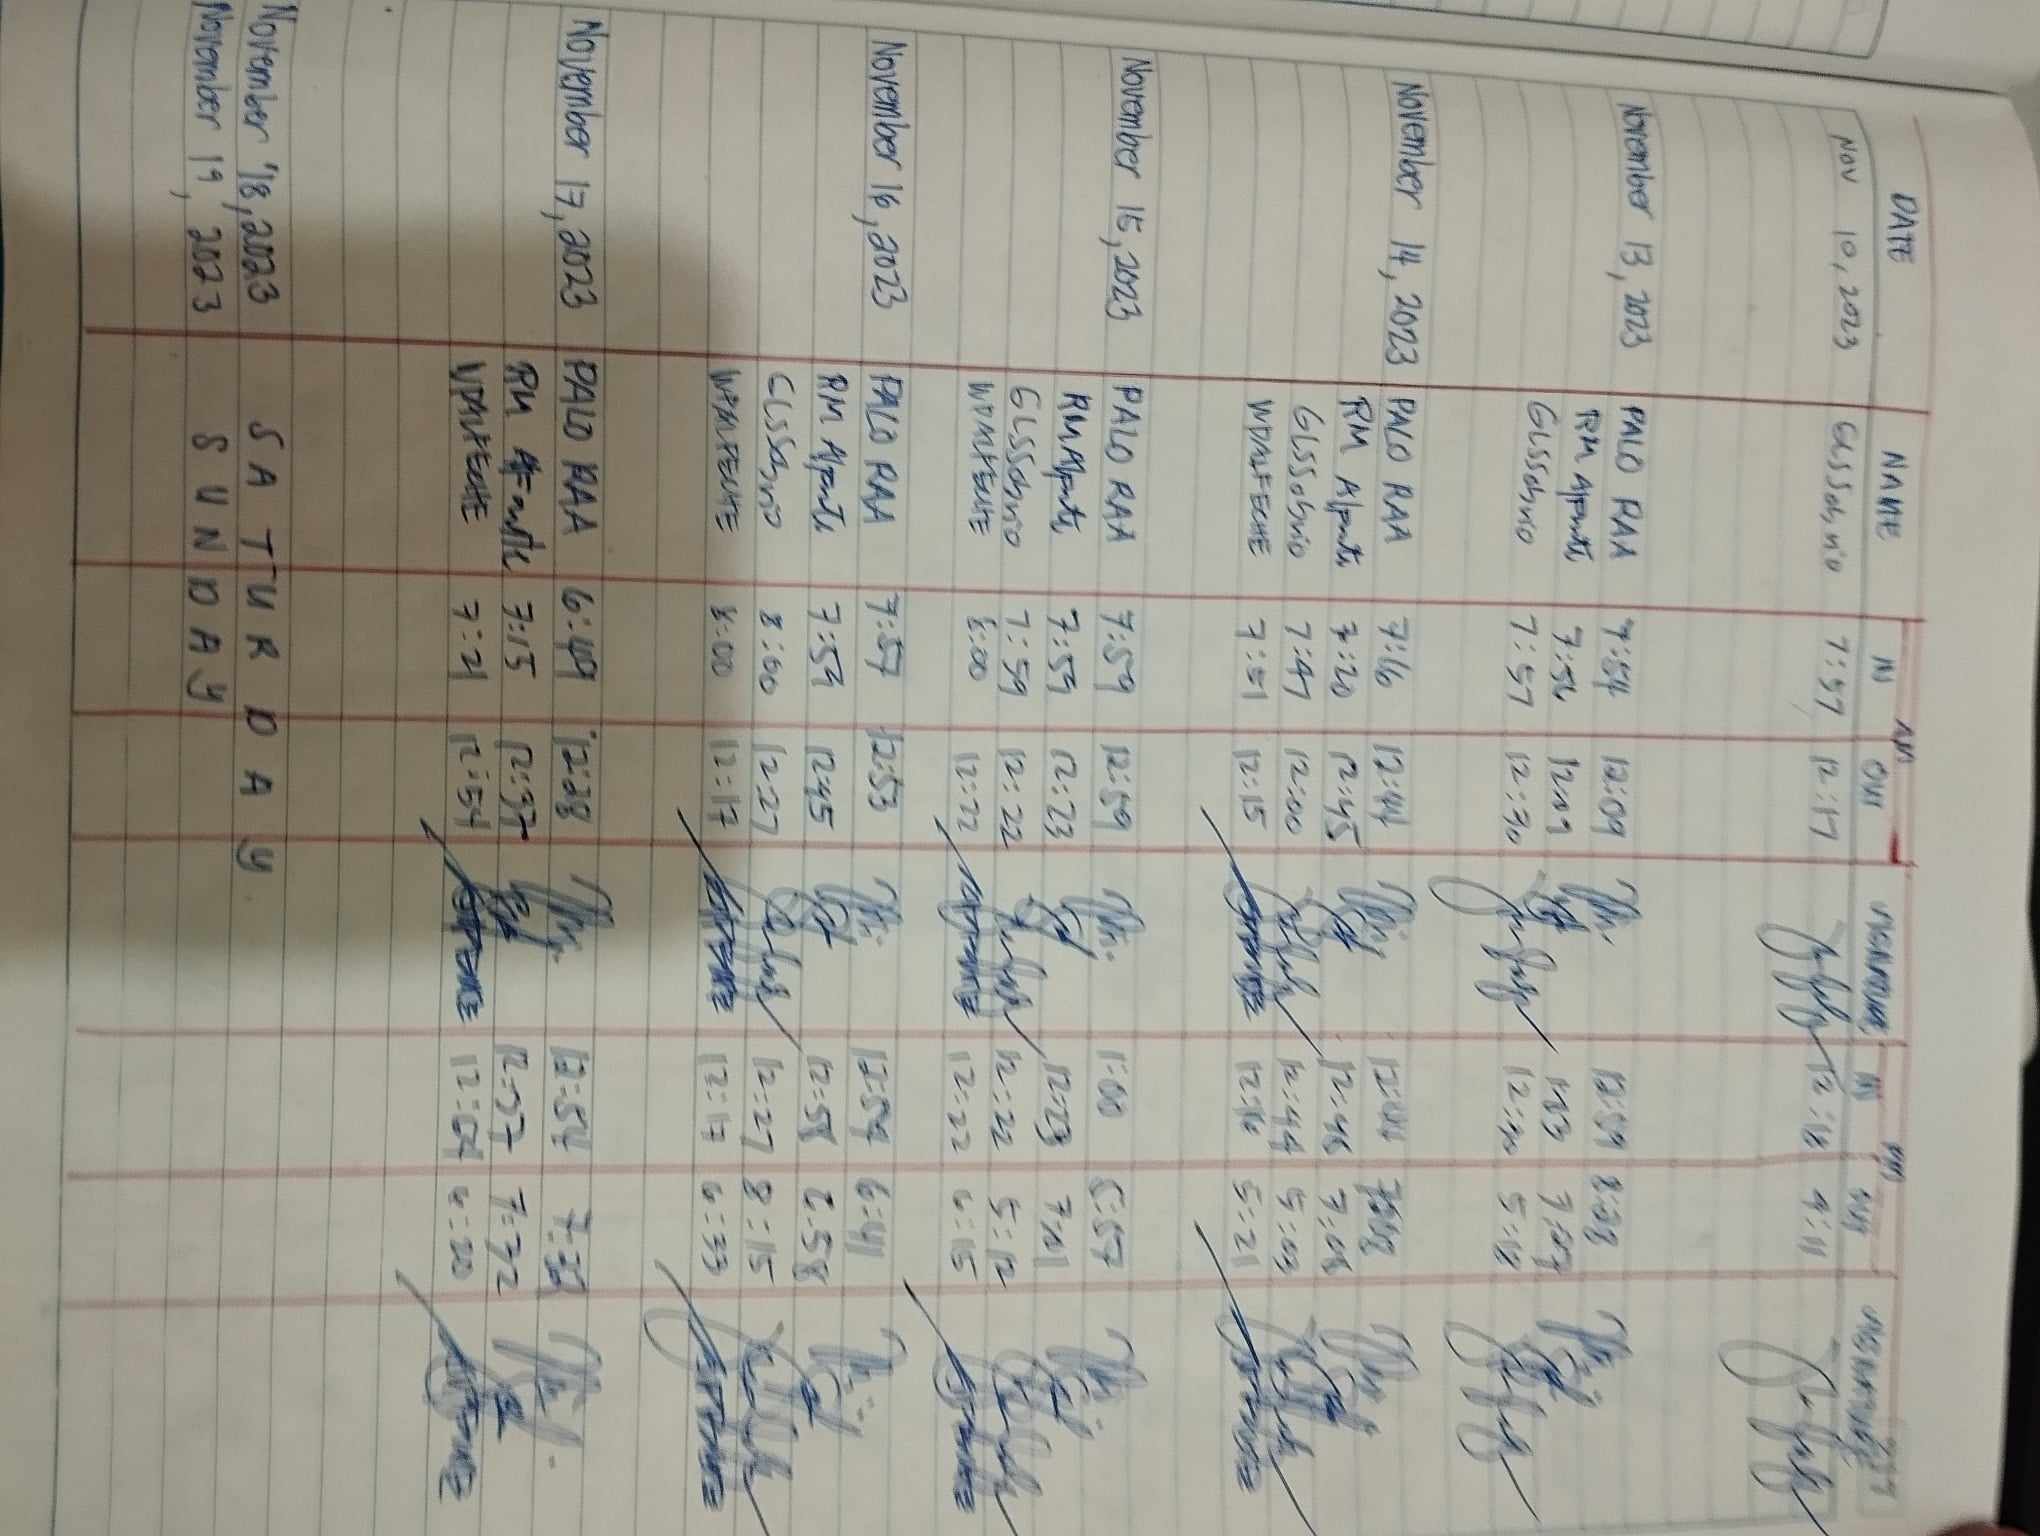 DATE NAME AM SIGNATURE PM SIGNATURE
IN OUT IN OUT
NOV 10, 2023 GLSSabnio 7:57 12:17 12:18 4:11
November 13, 2023 PALO RAA 7:54 12:09 12:59
RM Apente 7:56 12:09 7:07
GLSSabnio 7:57 12:30 12:30 5:12
November 14, 2023 PALO RAA 7:16 12:44 12:44
RM Apente 7:20 12:45 12:46 7:08
GLSSabnio 7:47 12:00 12:44 5:03
WDALFECHE 7:51 12:15 12:16 5:21
November 15, 2023 PALO RAA 7:59 12:59 1:00 5:57
RM Apente 7:53 12:23 12:23
GLSSabnio 7:59 12:22 12:22 5:12
WDALFECHE 8:00 12:22 12:22 6:15
November 16, 2023 PALO RAA 7:57 12:53 12:54 6:41
RM Apente 7:53 12:45 12:55 6:58
GLSSabnio 8:00 12:27 12:27 8:15
WDALFECHE 8:00 12:17 12:17 6:33
November 17, 2023 PALO RAA 6:49 12:28 12:54
RM Apente 7:15 12:37 12:37 7:32
WDALFECHE 7:21 12:54 12:54 6:20
November 18, 2023 SATURDAY
November 19, 2023 SUNDAY